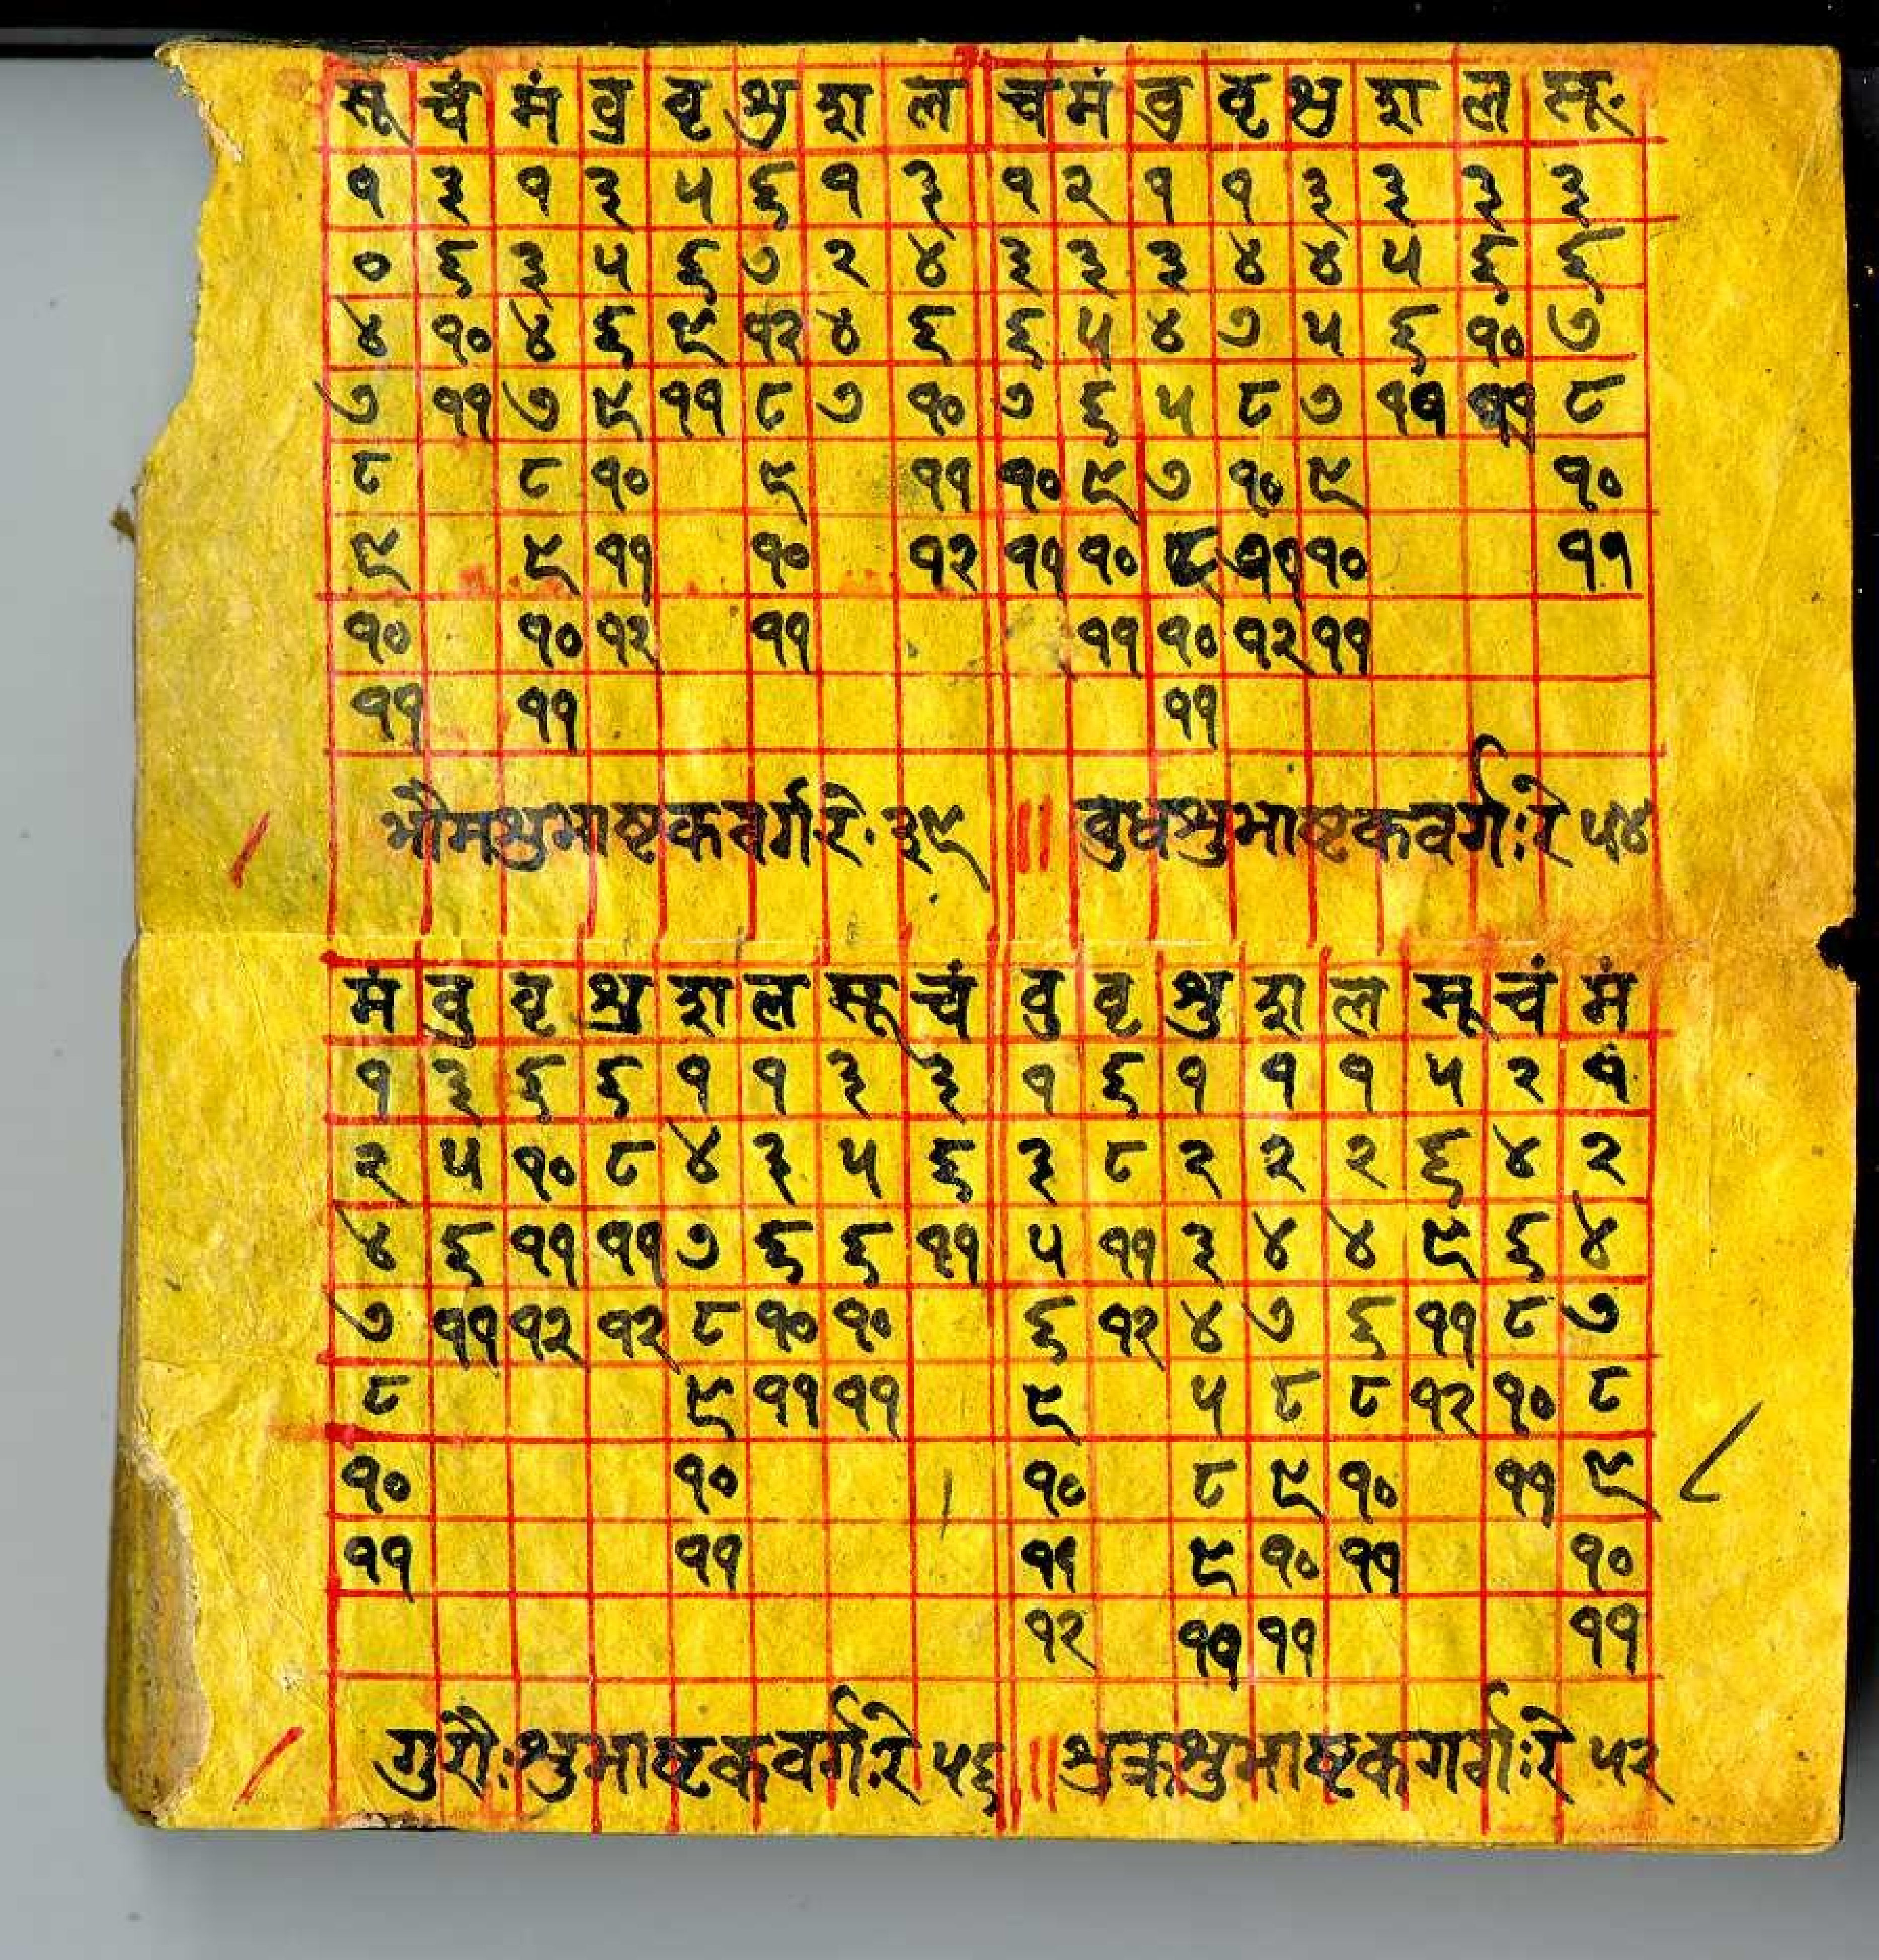 सू चं मं वु वृ श्रु श ल च मं वु वृ श्रु श ल सूः
१ ३ १ ३ ५ ६ १ ३ १ २ १ १ ३ ३ ३ ३
० ६ ३ ५ ६ ७ २ ४ ३ ३ ३ ४ ४ ५ ६ ६
४ १० ४ ६ ९ १२ ४ ६ ६ ५ ४ ७ ५ ६ १० ७
७ ११ ७ ९ ११ ८ ७ १० ७ ६ ५ ८ ७ ११ ११ ८
८ ८ १० ९ ११ १० ९ ७ १० ९ १०
९ ९ ११ १० १२ ११ १० ८ ११ १० ११
१० १० १२ ११ ११ १० १२ ११
११ ११ ११
भौमश्रुभाष्टकवर्ग रे. ३९ ॥ वुधश्रुभाष्टकवर्गः रे ५४
मं वु वृ श्रु श ल सू चं वु वृ श्रु श ल सू चं मं
१ ३ ६ ६ १ १ ३ ३ १ ६ १ १ १ ५ २ १
२ ५ १० ८ ४ ३ ५ ६ ३ ८ २ २ २ ६ ४ २
४ ६ ११ ११ ७ ६ ६ ११ ५ ११ ३ ४ ४ ९ ६ ४
७ ११ १२ १२ ८ १० १० ६ १२ ४ ७ ६ ११ ८ ७
८ ९ ११ ११ ९ ५ ८ ८ १२ १० ८
१० १० १० ८ ९ १० ११ ९
११ ११ ११ ९ १० ११ १०
१२ ११ ११ ११
गुरौः श्रुभाष्टकवर्गः रे ५६ ॥ श्रुक्रश्रुभाष्टकगर्गः रे ५२